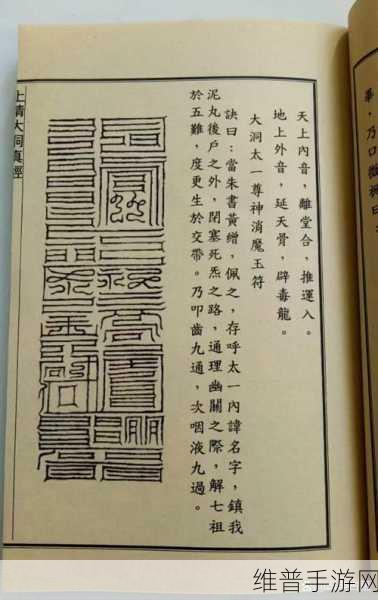 華，乃口微祝曰：
天上內音，離堂合，推運入。
地上外音，延天骨，辟毒龍。
大洞太一尊神消魔玉符
訣曰：當朱書黃繒，佩之，存呼太一內諱名字，鎮我
泥丸後戶之外，閉塞死炁之路，通理幽關之際，解七祖
於五難，度更生於交帶。乃叩齒九通，次咽液九過。
上清大洞真經
维普手游网